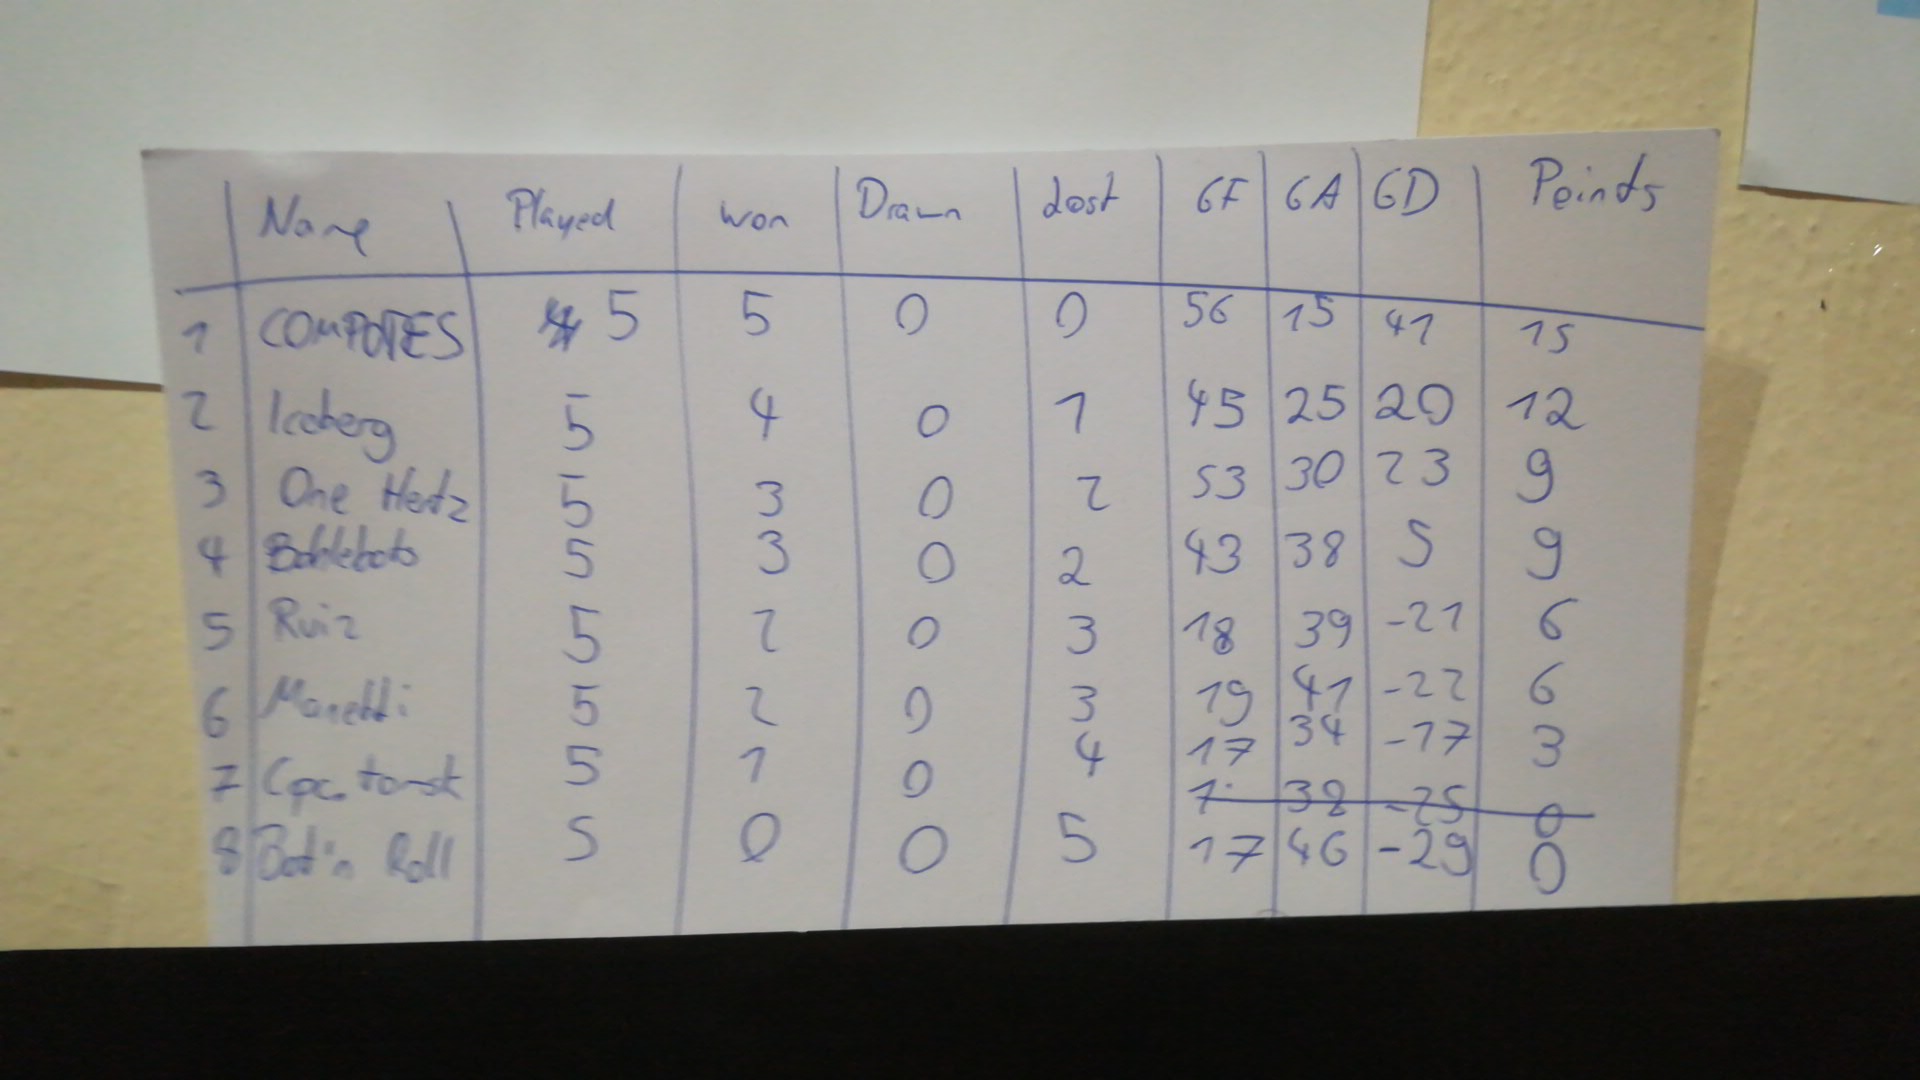 Name Played Won Drawn Lost GF GA GD Points
1 COMPOTES 5 5 0 0 56 15 41 15
2 Iceberg 5 4 0 1 45 25 20 12
3 One Hertz 5 3 0 2 53 30 23 9
4 5 3 0 2 43 38 5 9
5 Ruiz 5 2 0 3 18 39 -21 6
6 Manetti 5 2 0 3 19 41 -22 6
7 5 1 0 4 17 34 -17 3
38 -25 0
8 Bot'n Roll 5 0 0 5 17 46 -29 0